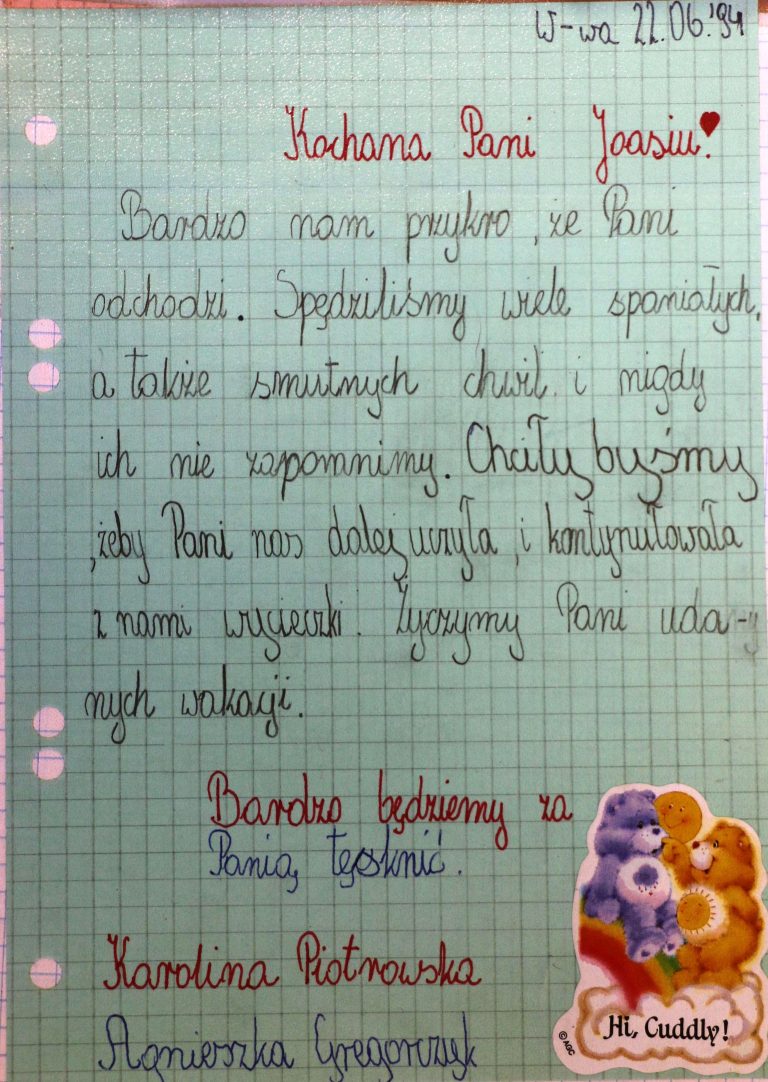 W-wa 22.06.'94
Kochana Pani Joasiu!
Bardzo nam przykro, że Pani
odchodzi. Spędziliśmy wiele spaniałych,
a także smutnych chwil i nigdy
ich nie zapomnimy. Chciały byśmy
,żeby Pani nas dalej uczyła, i kontynułowała
z nami wycieczki. Życzymy Pani uda-
nych wakacji.
Bardzo będziemy za
Panią tęsknić.
Karolina Piotrowska
Agnieszka Gregorczyk
Hi, Cuddly!
© AGC